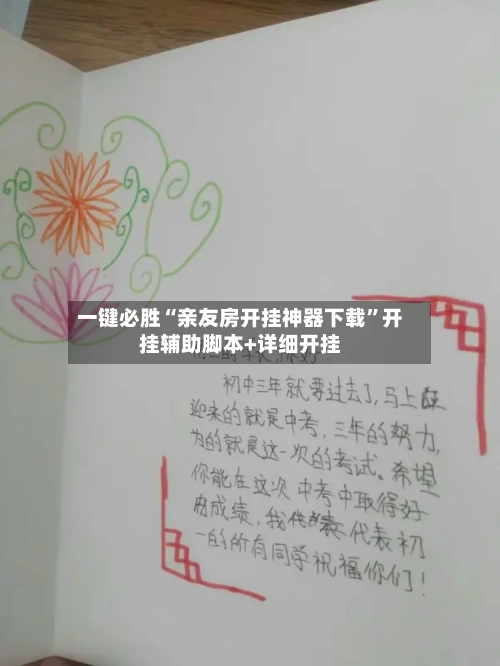 一键必胜“亲友房开挂神器下载”开
挂辅助脚本+详细开挂
初中三年就要过去了,马上
迎来的就是中考,三年的努力,
为的就是这一次的考试。希望
你能在这次中考中取得好
的成绩,我代表代表初
一的所有同学祝福你们!